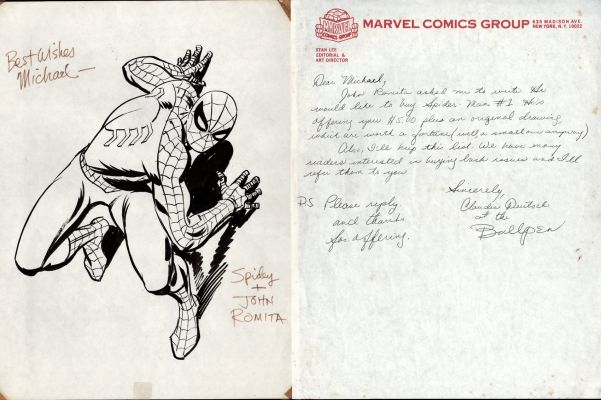 Best Wishes
Michael —
Spidey
+
JOHN
ROMITA
MARVEL COMICS GROUP
MARVEL COMICS GROUP 635 MADISON AVE.
NEW YORK, N.Y. 10022
STAN LEE
EDITORIAL &
ART DIRECTOR
Dear Michael,
John Romita asked me to write. He
would like to buy Spider-Man #1. He's
offering you $5.00 plus an original drawing
which are worth a fortune (well a small one anyway)
Also, I'll keep this list. We have many
readers interested in buying back issues and I'll
refer them to you
Sincerely,
Claudia
at the
Bullpen
P.S. Please reply.
and thanks
for offering.